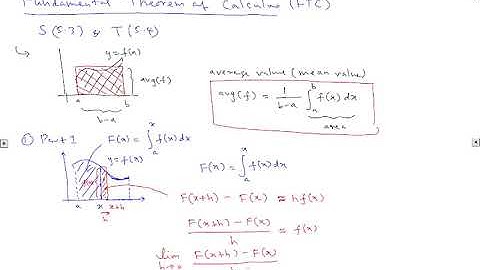 Fundamental Theorem of Calculus (FTC)
S(5.3) & T(5.4)
y=f(x)
avg(f)
a
b
b-a
average value (mean value)
avg(f) = 1/(b-a) ∫_a^b f(x) dx
area
① Part 1 F(x) = ∫_a^x f(x) dx
y=f(x)
a x x+h
h
F(x) = ∫_a^x f(x) dx
F(x+h) - F(x) ≈ hf(x)
(F(x+h) - F(x))/h ≈ f(x)
lim F(x+h) - F(x)